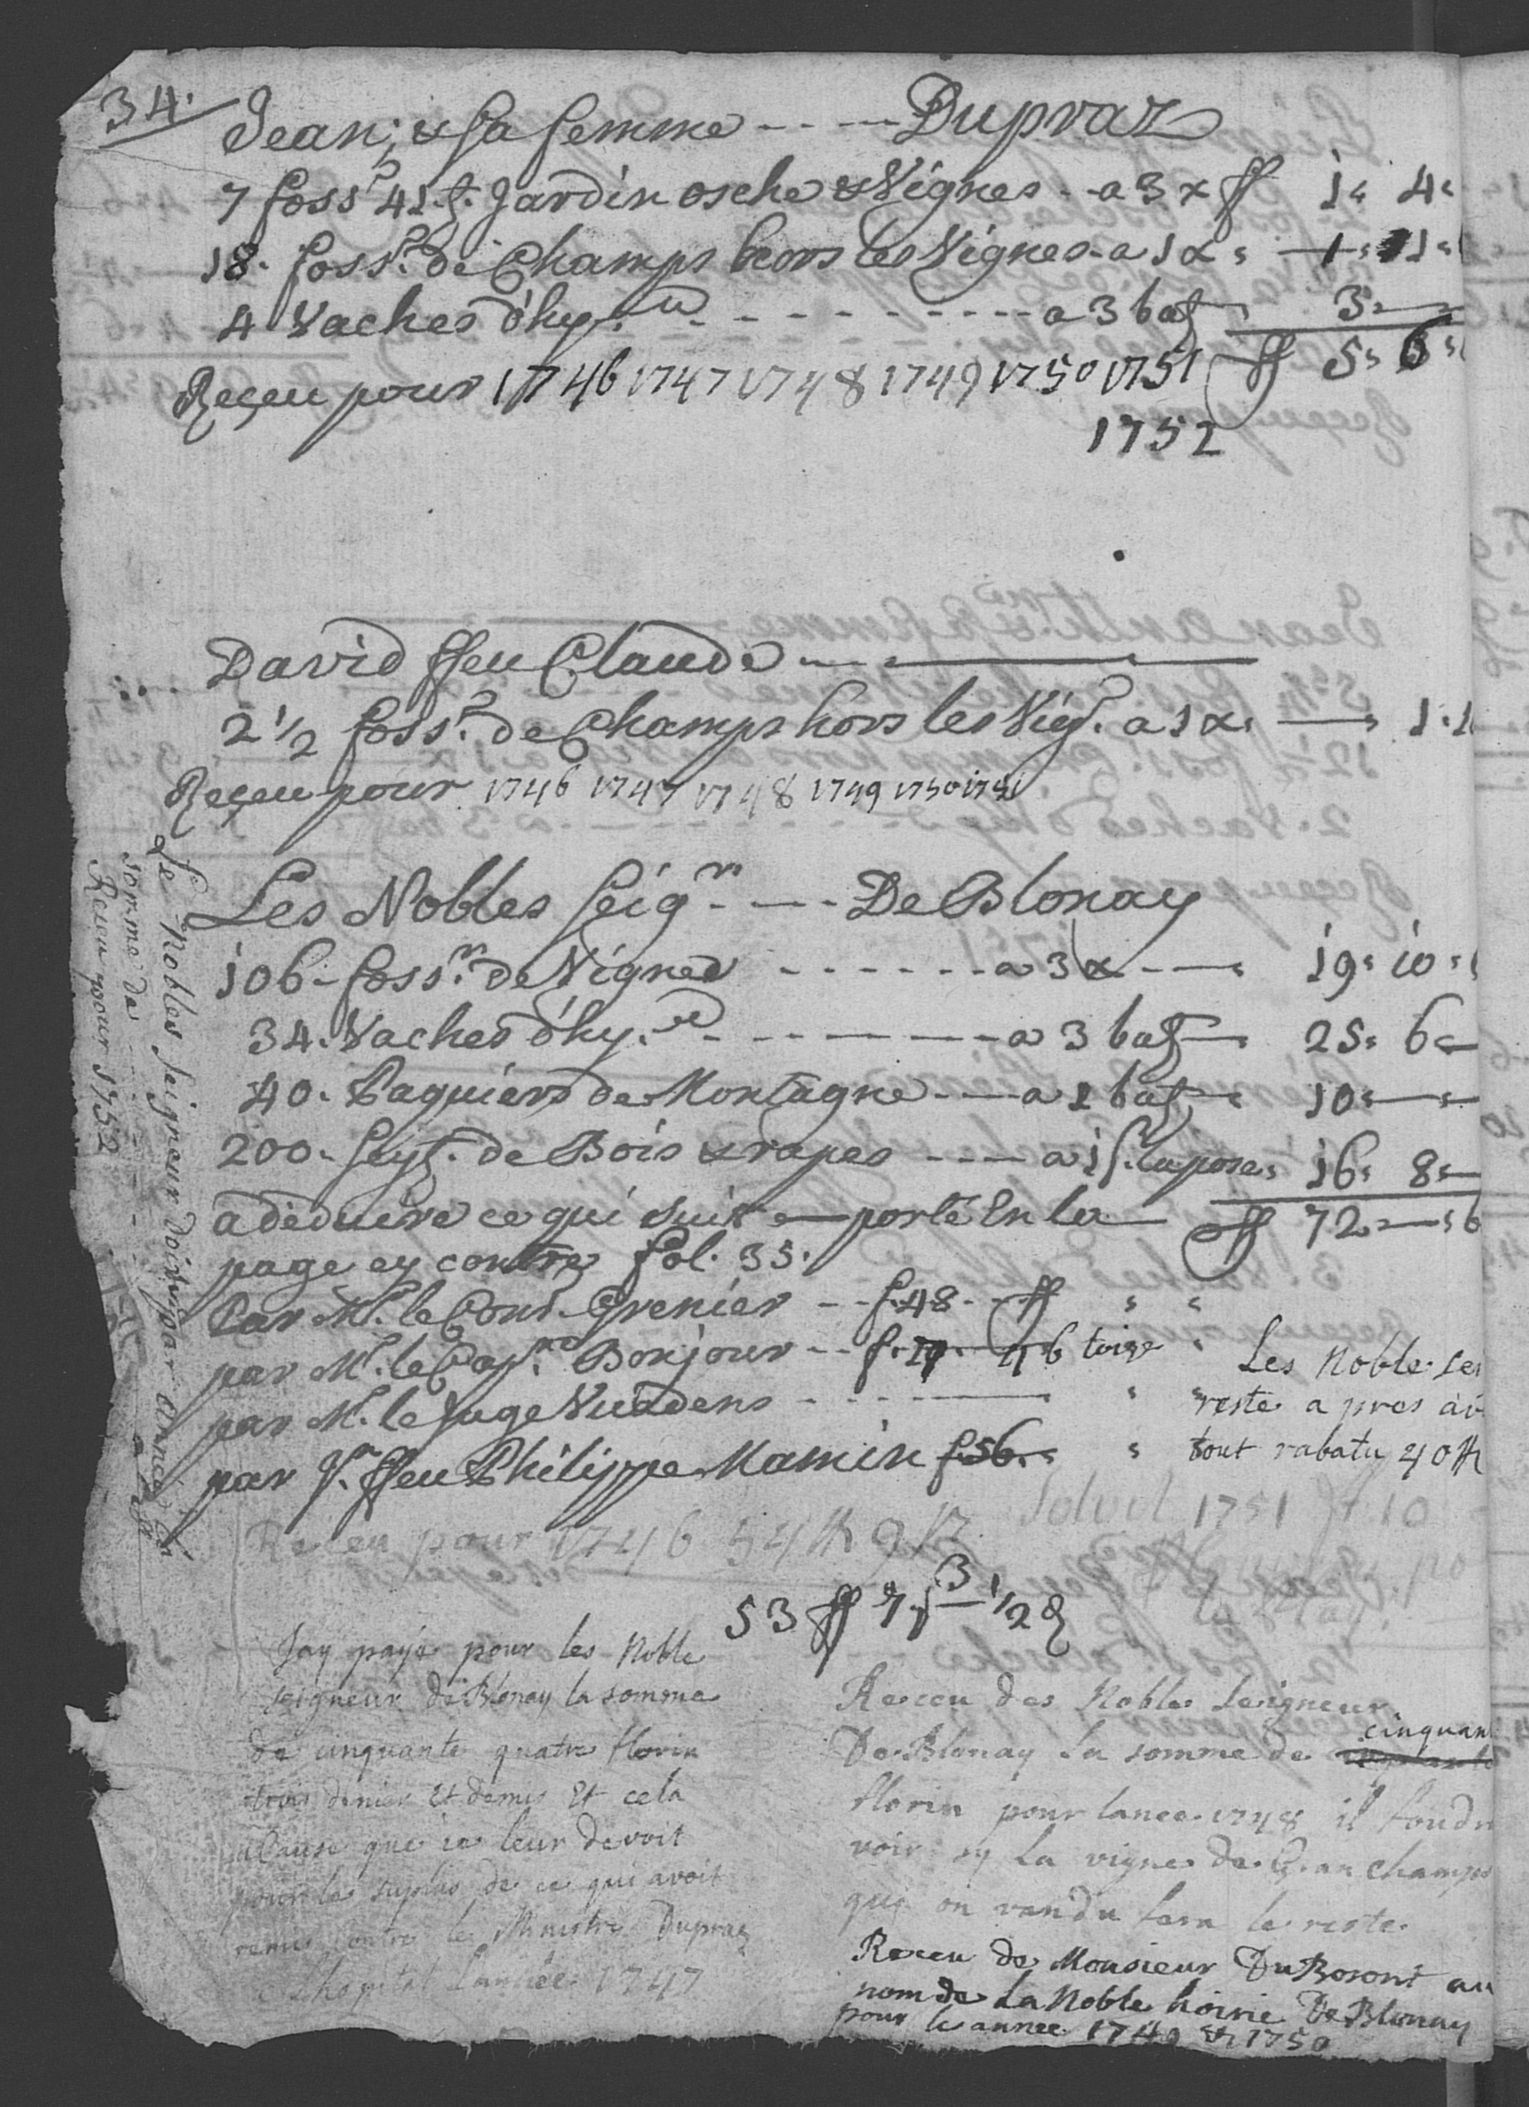 34.
Jean, & sa femme - - - - Dupraz
7 foss.r 41 t. Jardin osche & Vignes - - a 3 x ff 1 " 4 "
18. foss.r de Champs hors les Vignes - a 1 x " — 1 " 11 "
4 Vaches d'hy.u - - - - - - - - - - a 3 batz " 3 " —
Reçeu pour 1746 1747 1748 1749 1750 1751 ff 5 " 6 "
1752
David ffeu Claude - - -
2 1/2 foss.r de Champs hors les Vig.s a 1 x " — " 1 "
Reçeu pour 1746 1747 1748 1749 1750 1751
Les Nobles Seig.rs - - - De Blonay
106 - foss.rs de Vignes - - - - - - a 3 x - — " 19 " 10 "
34. Vaches d'hy.u - - - - - - - - a 3 batz — " 25 " 6 " —
40. Paquiers de Montagne - - - a 1 batz " 10 " — " —
200. Seyt. de Bois & rapes - - - - a 1 s. la pose " 16 " 8 " —
a deduire ce qui suit — porté En la — ff 72 " — " 6
page cy contre fol. 35.
Par M.r le Cons. Grenier - - - f. 48 - - ff " "
par M.r le Cap.ne Bonjour - - f. 46 toise "
par M.r le Juge Vuadens - - - - - - " "
par J.n ffeu Philippe Mamin f. 56 " "
Les Noble Sei
reste a pres av
tout rabatu 40 ff
Receu pour 1746 54 ff 9
Solvit 1751 ff 10
53 ff 7 s 3 1/2 d
Jay payé pour les Noble
seigneur de Blonay la somme
de cinquante quatre florin
trois denier Et demis Et cela
a Cause que ie leur devoit
pour le suplus de ce qui avoit
remis contre le Ministre Dupraz
Lhopital Lannée 1747
Receu des Noble Seigneur
De Blonay La somme de cinquan
florin pour lanee 1748 il foudr
voir sy La vigne de Gran champs
qui on vandu fera le reste.
Receu de Monsieur Du Bosont au
nom de La Noble hoirie De Blonay
pour le annee 1749 & 1750
Le Nobles Seigneur doivent par annee
somme de - - - - -
Receu pour 1752